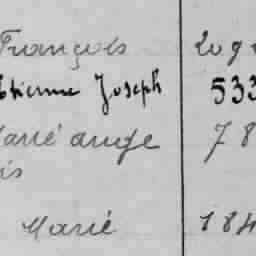 François
Etienne Joseph 533
Marie ange 78
is
Marie 184